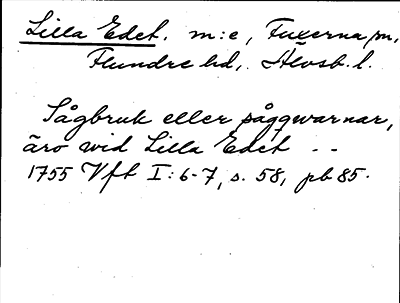 Lilla Edet. m:e, Fuxerna sn,
Flundre hd, Älvsb. l.
Sågbruk eller sågqwarnar,
äro wid Lilla Edet - -
1755 Vft I: 6-7, s. 58, pb 85.